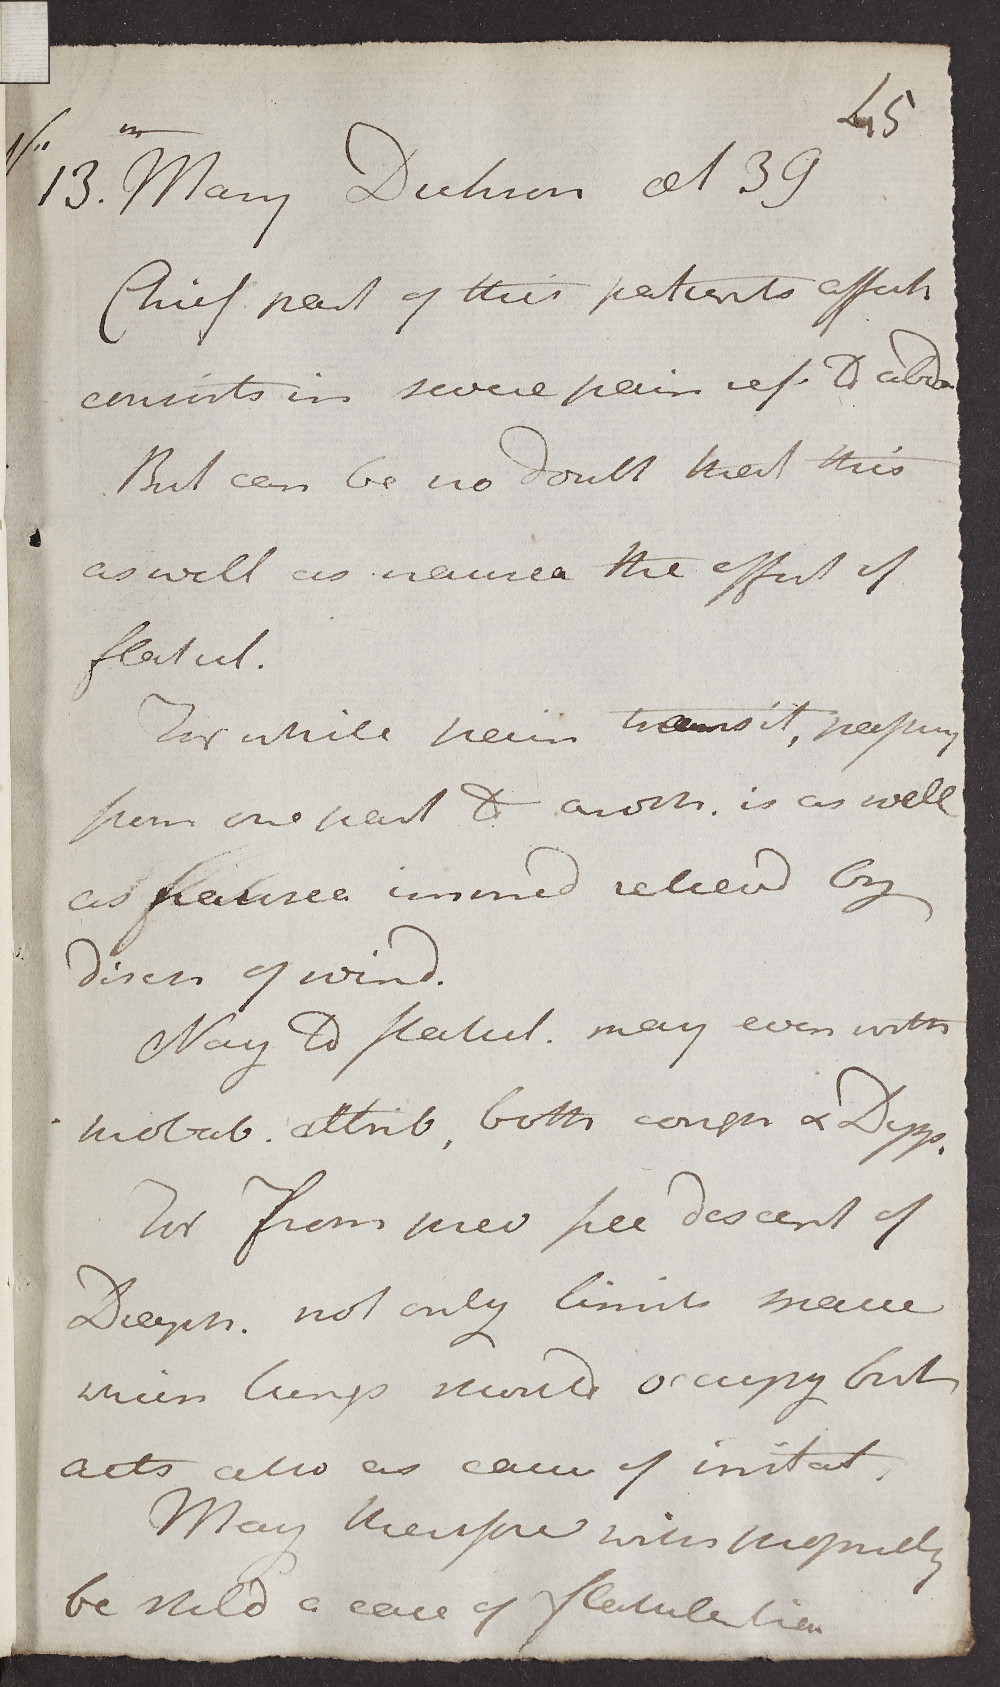 45
No
13. Mary Dickson æt 39
Chief part of this patients affect
consists in severe pain ref. to abdo
But can be no doubt that this
as well as nausea the effect of
flatul.
For while pain transit, passing
from one part to anoth. is as well
as nausea immed relievd by
disch of wind.
Nay to flatul. may even with
probab. attrib, both cough & Dysp.
For From prev free descent of
Diaph. not only limits space
which lungs should occupy but
acts also as cause of irritat.
May therefore with propriety
be stild a case of flatulentia